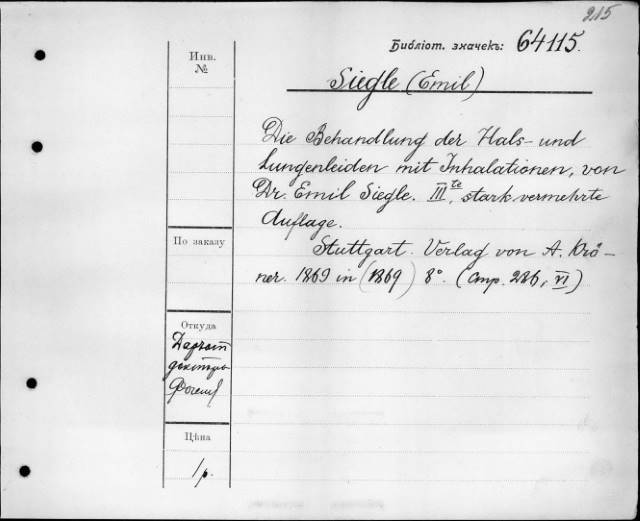 215
Библіот. значекъ: 64115.
Инв.
№
Siegle (Emil)
Die Behandlung der Hals- und
Lungenleiden mit Inhalationen, von
Dr. Emil Siegle. III te, stark vermehrte
Auflage.
Stuttgart. Verlag von A. Krö-
ner. 1869 in (1869) 8°. (стр. 286, VI)
По заказу
Откуда
Цѣна
1 р.